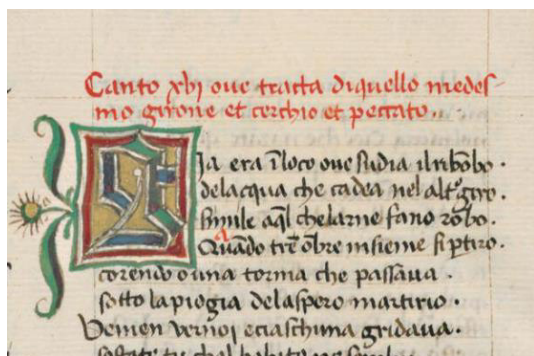 Canto xvj oue tracta diquello medes
mo girone et cerchio et peccato.
Gia era īloco oue sudia ilribōbo.
delacqua che cadea nel altro giro.
simile aql chelarne fano rōbo.
Quādo tre ōbre insieme si ꝑtiro.
corendo duna torma che passaua
sotto lapiogia delaspero martirio.
Venien verinoi eciaschuna gridaua.